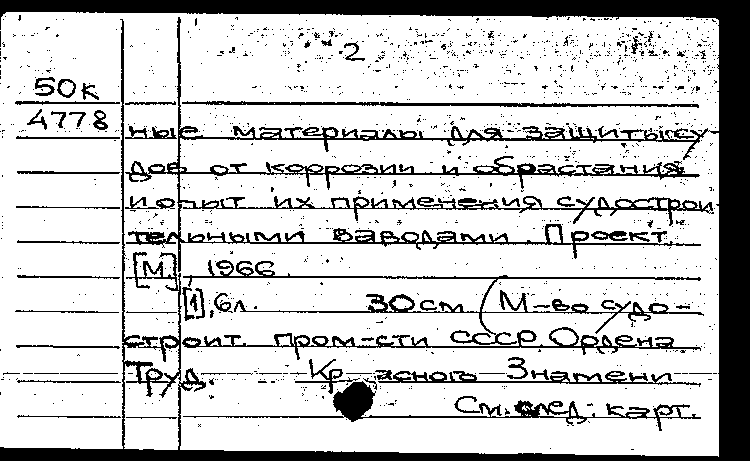 2
50к
4778
ные материалы для защиты су-
дов от коррозии и обрастания
и опыт их применения судострои-
тельными заводами. Проект.
[М.], 1966.
[1], 6л. 30 см (М-во судо-
строит. пром-сти СССР. Ордена
Труд. Красного Знамени
См. след. карт.